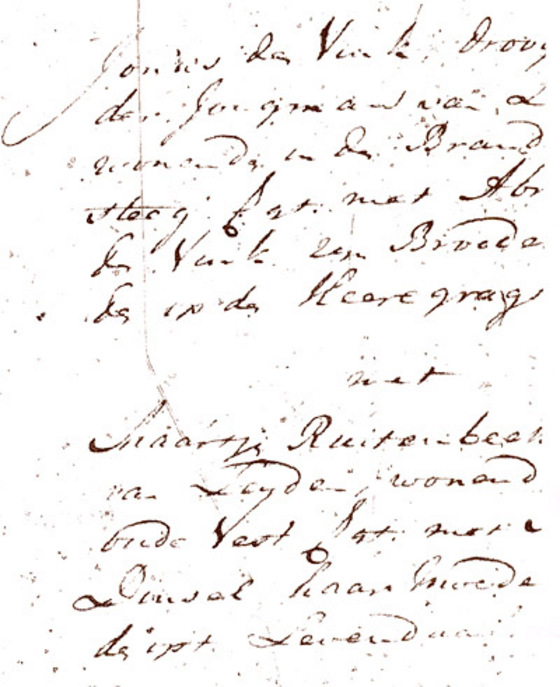 Jonas de Vink, droog
der Jongman van L
wonende in de Brand
steeg Igt. met Abr
de Vink zijn Broede
de op de Heere gragt
met
Maartje Ruitenbeek
van Leyden, wonend
oude Vest Igt. met
Dinsel haar Moede
de opt Levendaal